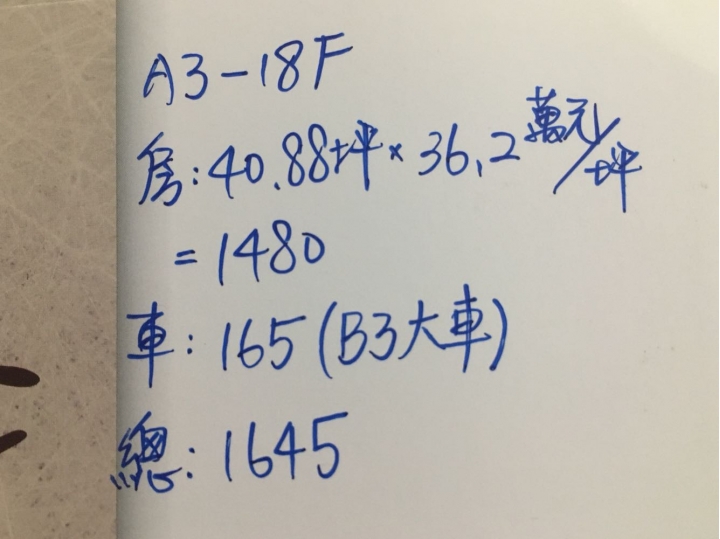 A3-18F
房:40.88坪×36.2萬元/坪
=1480
車:165(B3大車)
總:1645